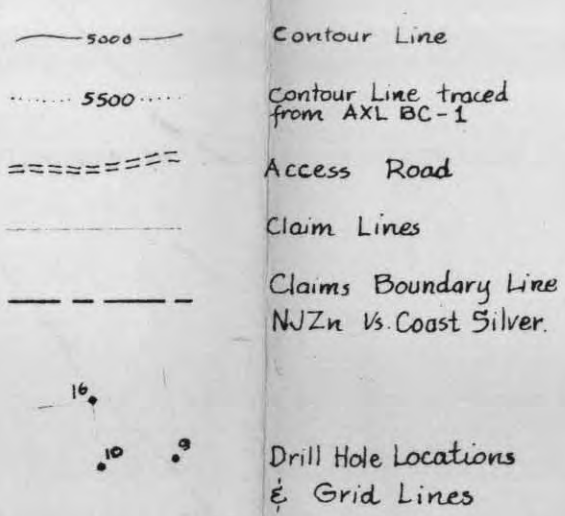 5000 Contour Line
5500 Contour Line traced
from AXL BC-1
Access Road
Claim Lines
Claims Boundary Line
NJZn Vs. Coast Silver.
16
10 9 Drill Hole Locations
& Grid Lines